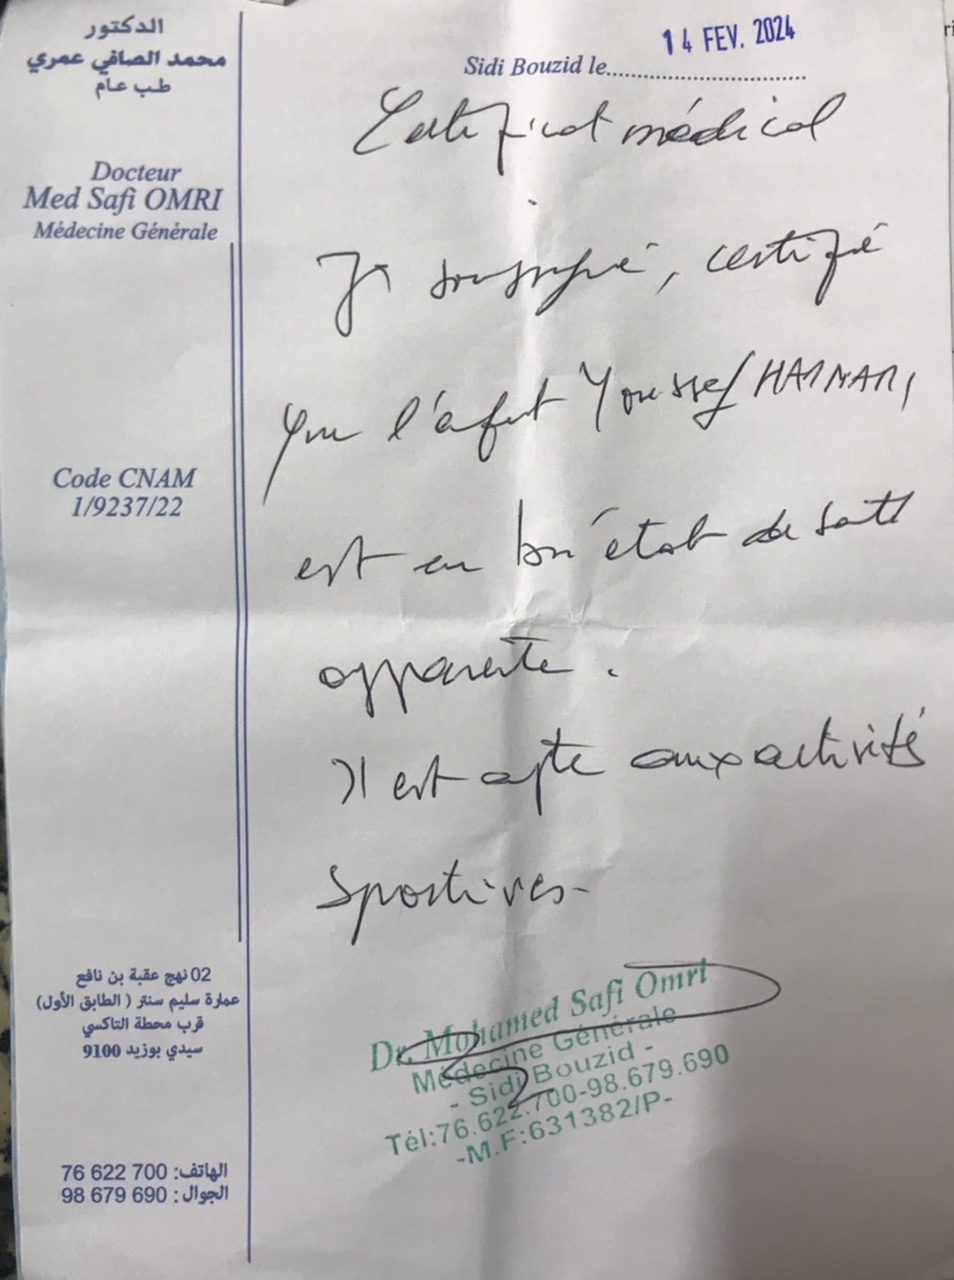 الدكتور
محمد الصافي عمري
طب عام
Docteur
Med Safi OMRI
Médecine Générale
Code CNAM
1/9237/22
Sidi Bouzid le
14 FEV. 2024
Certificat médical
Je soussigné, certifié
que l'enfant Youssef
est en bon état de santé
apparente.
Il est apte aux activités
sportives-
Dr. Mohamed Safi Omri
Médecine Générale
- Sidi Bouzid -
Tél:76.622.700-98.679.690
-M.F:631382/P-
02 نهج عقبة بن نافع
عمارة سليم سنتر ( الطابق الأول)
قرب محطة التاكسي
سيدي بوزيد 9100
الهاتف: 76 622 700
الجوال: 98 679 690